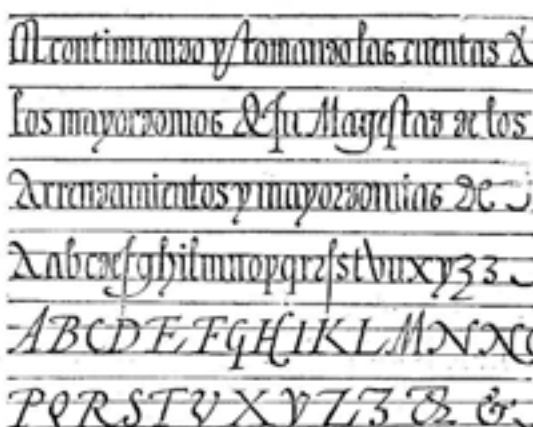 continuando y tomando las cuentas d
los mayordomos de su Magestad de los
Arrendamientos y mayordomias de
A a b c d e f g h i l m n o p q r z s s t v u x y z z
A B C D E F G H I K L M N N O
P Q R S T V X Y Z Z &